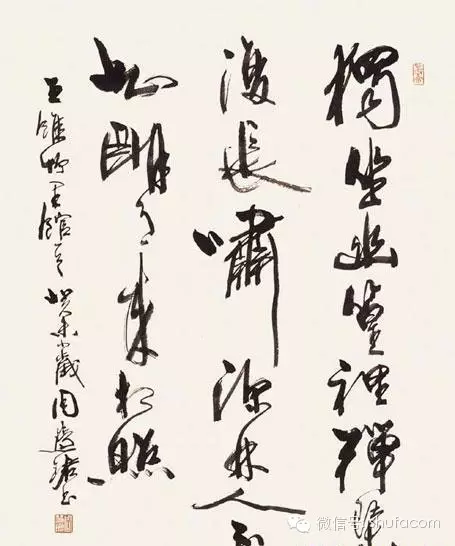 獨坐幽篁裡彈琴
復長嘯深林人不
知明月來相照
王維竹里館 癸未歲周慧珺書
微信号: shufacom